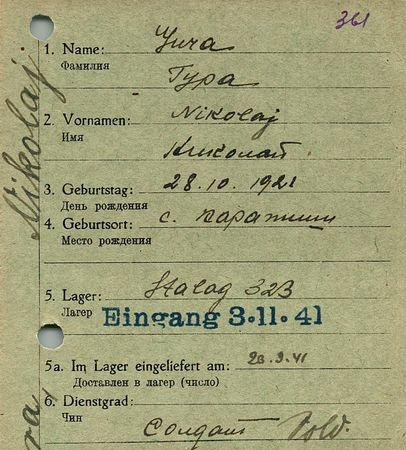 361
1. Name: Гура
Фамилия Гура
2. Vornamen: Nikolaj
Имя Николай
3. Geburtstag: 28.10.1921
День рождения
4. Geburtsort: с.
Место рождения
5. Lager: Stalag 323
Лагер
Eingang 3.11.41
5a. Im Lager eingeliefert am: .9.41
Доставлен в лагер (число)
6. Dienstgrad:
Чин Солдат Sold.
Nikolaj
ra